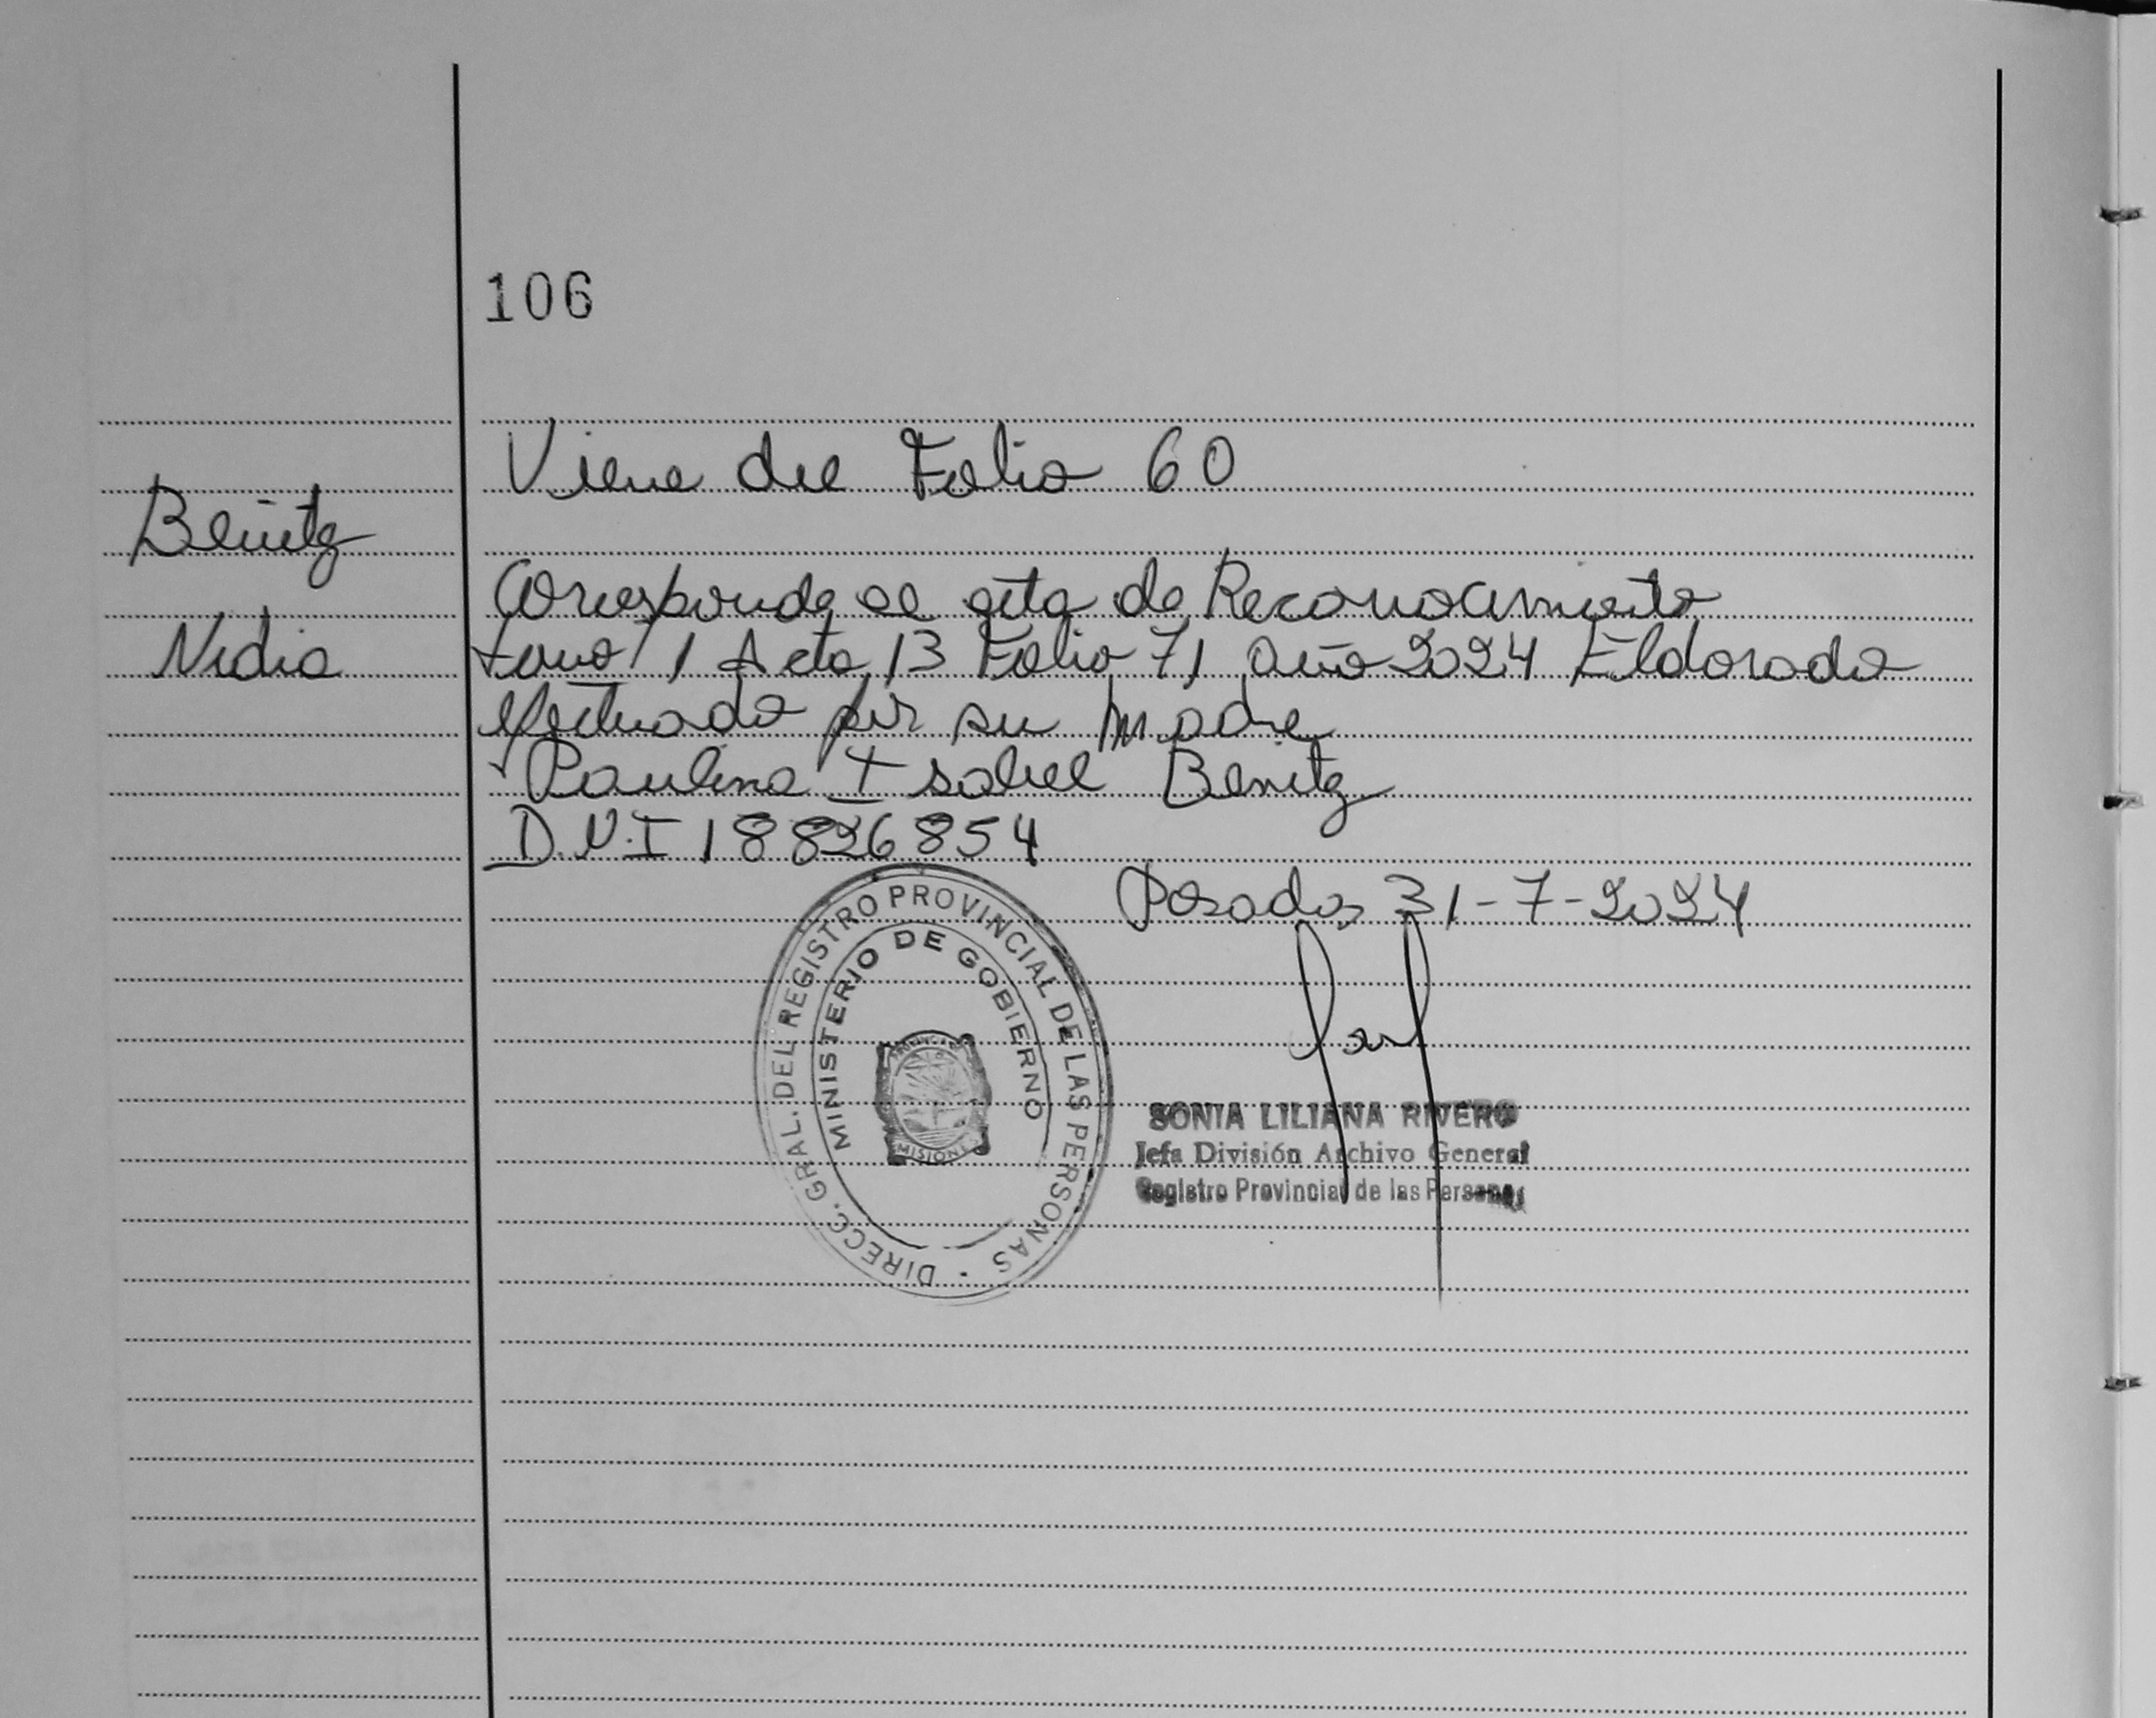 106
Viene del Folio 60
Benitez
Corresponde al acta de Reconocimiento
Nidia
tomo 1 Acta 13 Folio 71 año 2024 Eldorado
efectuado por su madre
Paulina Isabel Benitez
D.N.I 18826854
Posadas 31-7-2024
DIRECC. GRAL. DEL REGISTRO PROVINCIAL DE LAS PERSONAS
MINISTERIO DE GOBIERNO
MISIONES
SONIA LILIANA RIVERO
Jefa División Archivo General
Registro Provincial de las Personas